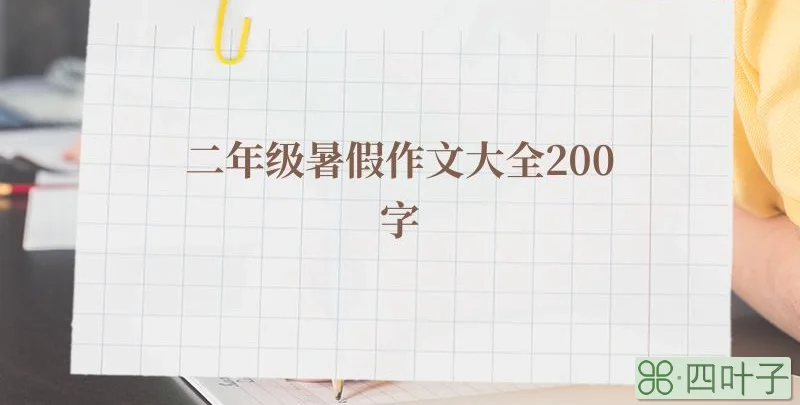 二年级暑假作文大全200
字
四叶子